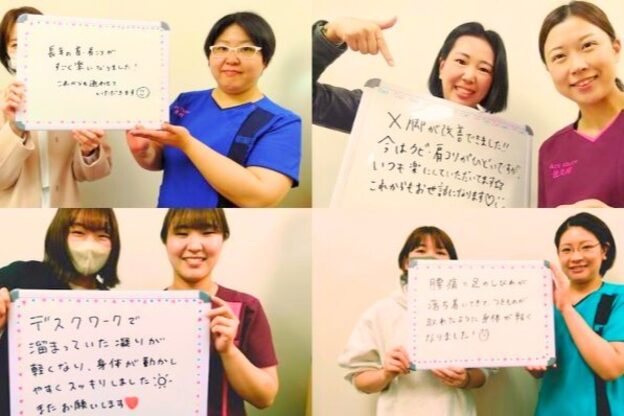 長年の首・肩こりが
すごく楽になりました!
これからも通わせて
いただきます
X脚が改善できました!!
今はクビ・肩コリがひどいですが、
いつも楽にしていただいてます☆
これからもお世話になります♡
デスクワークで
溜まっていた凝りが
軽くなり、身体が動かし
やすくスッキリしました
またお願いします❤
腰痛と足のしびれが
落ち着いてきてつきものが
取れたように身体が軽く
なりました!